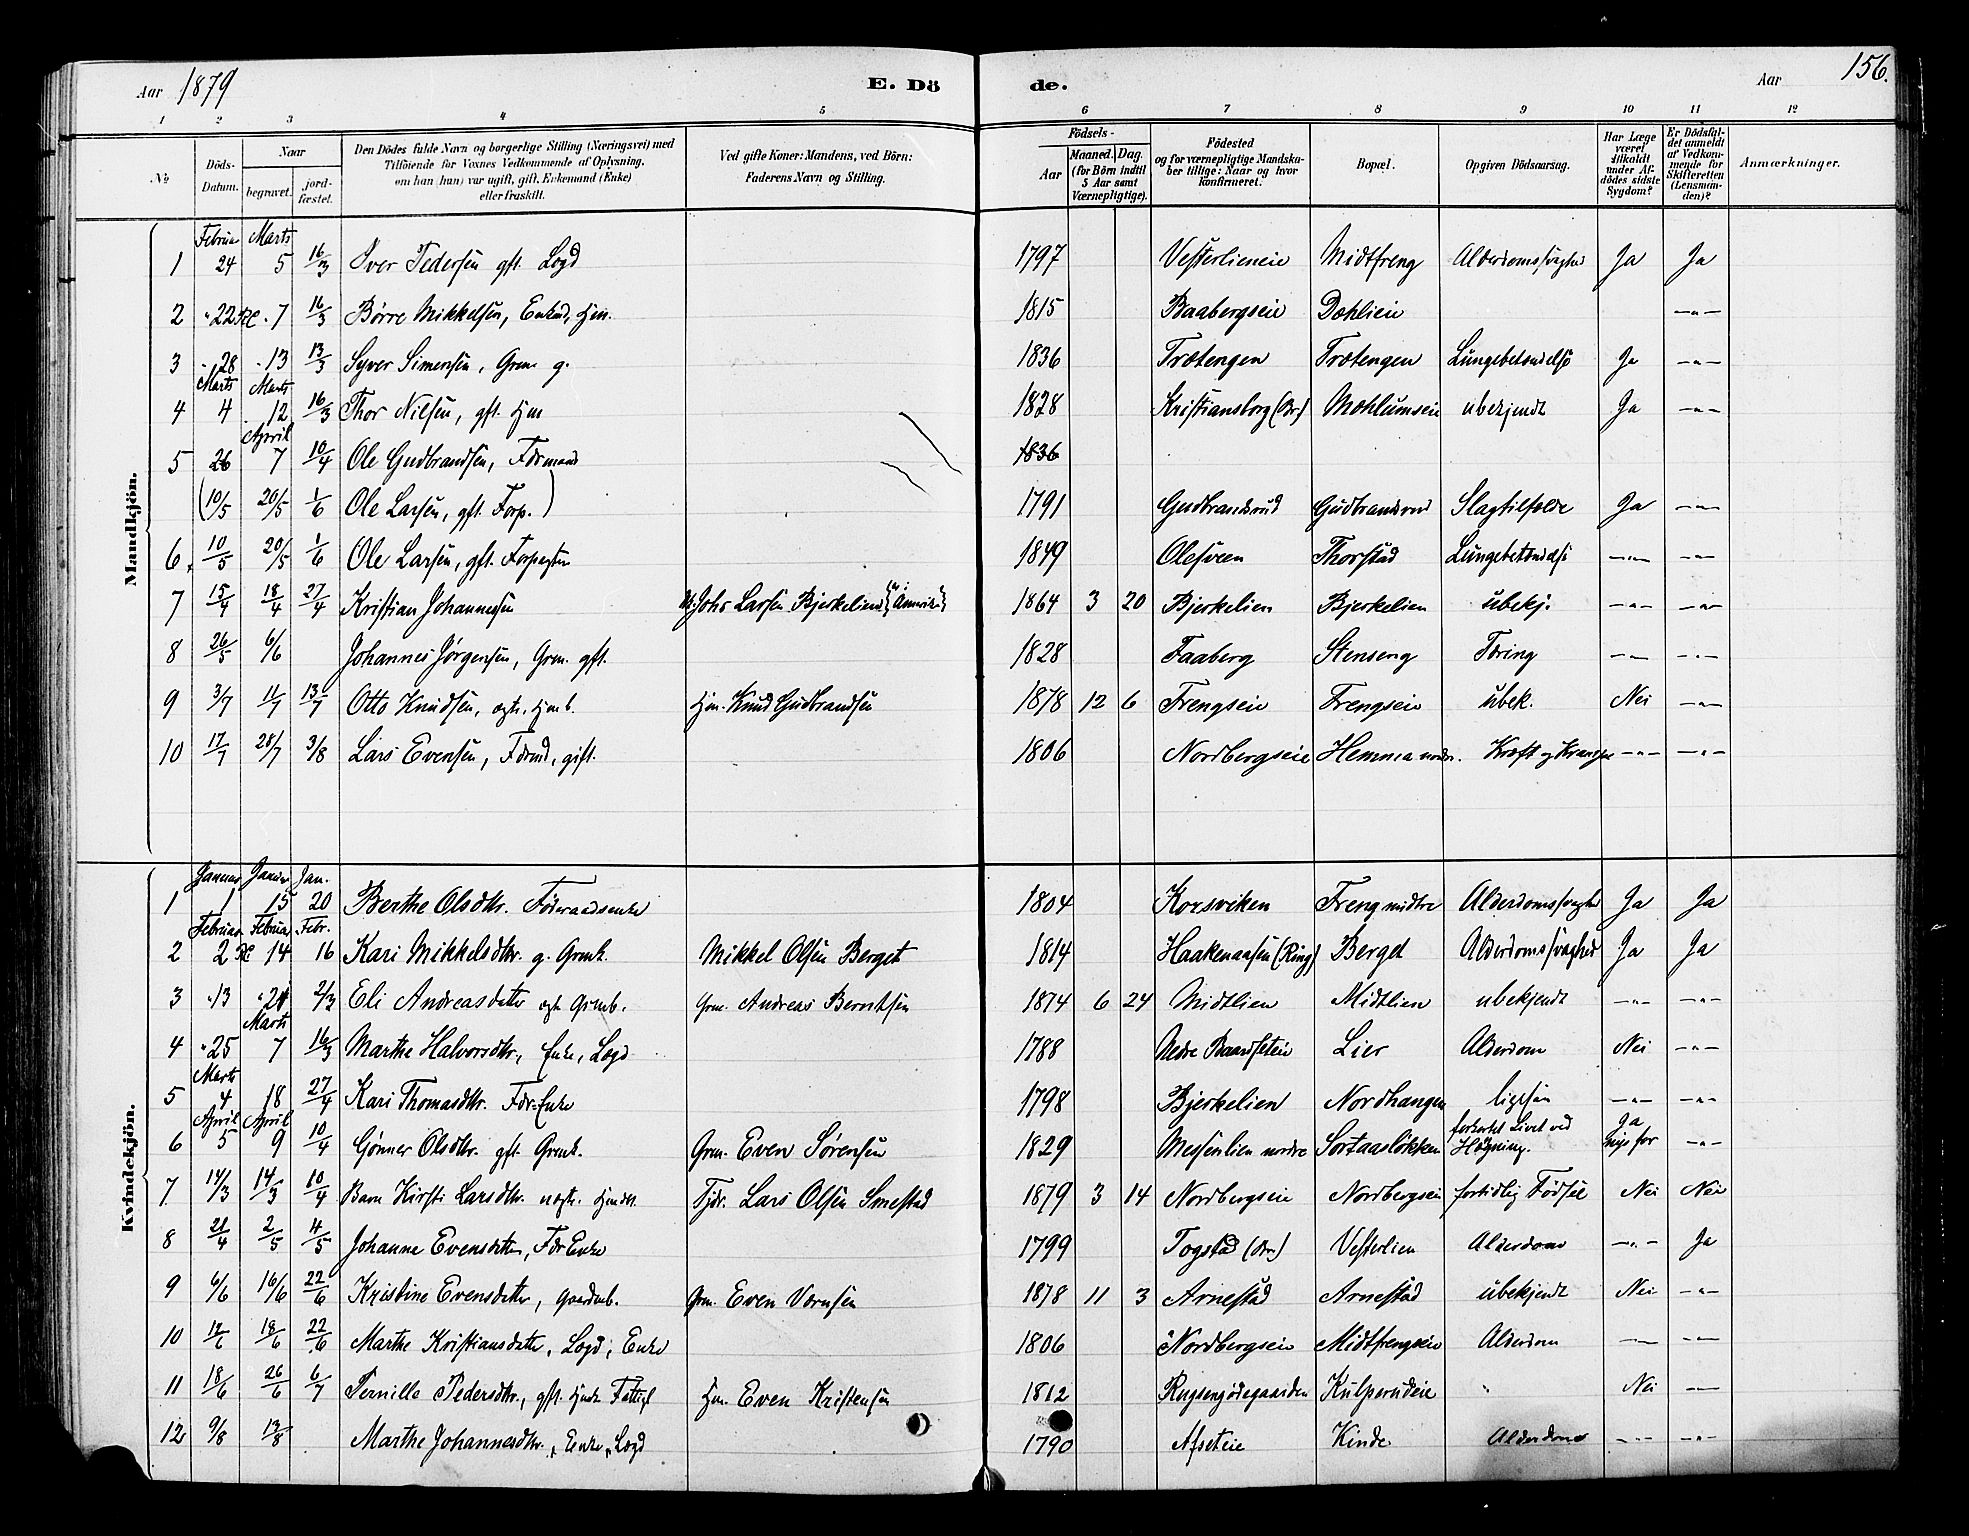 Aar 1879
E. Dö
de.
Aar
156.
1 2 3 4 5 6 7 8 9 10 11 12
No
Döds-Datum.
Naar
begravet.
jord-fæstet.
Den Dödes fulde Navn og borgerlige Stilling (Næringsvei) med
Tilföiende for Voxnes Vedkommende af Oplysning,
om han (hun) var ugift, gift, Enkemand (Enke)
eller fraskilt.
Ved gifte Koner: Mandens, ved Börn:
Faderens Navn og Stilling.
Födsels-
Aar
Maaned. Dag.
(for Börn indtil
5 Aar samt
Værnepligtige).
Födested
og for værnepligtige Mandska-
ber tillige: Naar og hvor
konfirmeret.
Bopæl.
Opgiven Dödsaarsag.
Har Læge
været
tilkaldt
under Af-
dödes sidste
Sygdom?
Er Dödsfal-
det anmeldt
af Vedkom-
mende for
Skifteretten
(Lensman-
den)?
Anmærkninger.
Mandkjön.
Februar Marts
1 24 5 16/3 Iver Pedersen gft. Lægd 1797 Vesterlieneie Midtfreng Alderdomssvaghed Ja Ja
2 " 22 " 7 16/3 Børre Mikkelsen, Enkmd, Hjm. 1815 Baabergseie Dæhlieie -"-
3 " 28 " 13 13/3 Syver Simensen, Grm. g. 1836 Trætengen Trætengen Lungebetændelse Ja -"-
Marts Marts
4 4 12 16/3 Thor Nielsen, gft. Hjm 1828 Kristiansborg (Br.) Mæhlumseie ubekjendt Ja -"-
April
5 26 7 10/4 Ole Gudbrandsen, Fdrmand 1836
(10/5 20/5 1/6 Ole Larsen, gft. Forp.) 1791 Gudbrandsrud Gudbrandsrud Slagtilfælde Ja -"-
6 10/5 20/5 1/6 Ole Larsen, gft. Forpagter 1849 Olesveen Thorstad Lungebetændelse -"- -"-
7 15/4 18/4 27/4 Kristian Johannessen Johs Larsen Bjerkelien (i Amerika) 1864 3 20 Bjerkelien Bjerkelien ubekj. -"- -"-
8 26/5 6/6 Johannes Jørgensen, Grm. gft. 1828 Faaberg Stenseng Tæring -"- -"-
9 3/7 11/7 13/7 Otto Knudsen, ægte. Hjmb. Hjm. Knud Gudbrandsen 1878 12 6 Frengseie Frengseie ubek. Nei -"-
10 17/7 28/7 3/8 Lars Evensen, Fdrmd, gift. 1806 Nordbergseie Hemma nordr. Kræft -"- -"-
Kvindekjön.
Januar Januar Jan.
1 1 15 20 Berthe Olsdtr. Føderaadsenke 1804 Korsviken Freng midtre Alderdomssvaghed Ja Ja
Februar Februar Febr.
2 2 14 16 Kari Mikkelsdtr. g. Grmk. Mikkel Olsen Berget 1814 Haakenaasen (Ring) Berget Alderdomssvaghed Ja Ja
3 " 13 " 24 2/3 Eli Andreasdatter ægte Grmb. Grm. Andreas Berntsen 1874 6 24 Midtlien Midtlien ubekjendt -"- -"-
Marts
4 " 25 7 16/3 Marthe Halvorsdtr., Enke, Lægd 1788 Nedre Baardseteie Lier Alderdom Nei -"-
Marts
5 4 18 27/4 Kari Thomasdtr. Fdr. Enke 1798 Bjerkelien Nordhangen ligesaa -"- -"-
April April
6 5 9 10/4 Gønner Olsdtr. gft. Grmk. Grm. Even Sørensen 1829 Messenlien nordre Sortaasløkken forkortet Livet ved Hægning. Ja -"-
7 14/3 14/3 10/4 Barn Kirsti Larsdtr. uægte. Tjdr. Lars Olsen Smestad 1879 3 14 Nordbergseie Nordbergseie fortidlig Fødsel Nei Nei
8 21/4 2/5 4/5 Johanne Evensdatter, Fdr Enke 1799 Togstad (Br.) Vesterlien Alderdom -"- Ja
9 6/6 16/6 22/6 Kristine Evensdatter, gaardmb. Grm. Even 1878 11 3 Arnestad Arnestad ubekjendt Nei -"-
10 12/6 18/6 22/6 Marthe Kristiansdatter, Lægd, Enke 1806 Nordbergseie Midtfrengseie Alderdom -"- -"-
11 18/6 26/6 6/7 Pernille Pedersdtr., gft. Hjmk. Fattig Hjm. Even Kristensen 1812 Kulperudeie " Nei -"-
12 9/8 13/8 Marthe Johannesdtr., Enke, Lægd 1790 Afseteie Kinde Alderdom -"- -"-